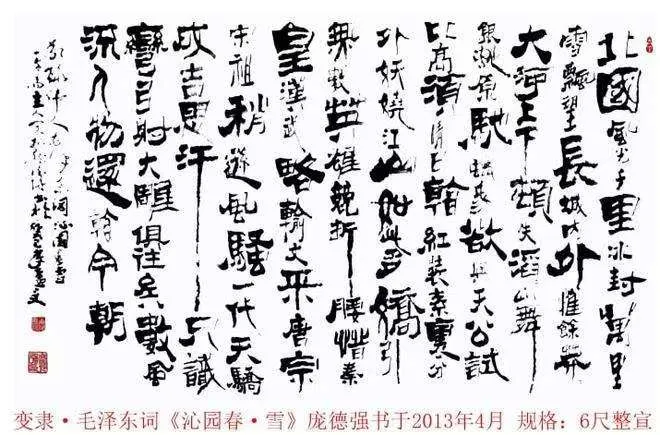 北國風光千里冰封萬里
雪飄望長城內外惟餘莽
大河上下頓失滔山舞
銀蛇原馳蠟象欲與天公試
比高須晴日看紅裝素裹分
外妖嬈江山如此多嬌引
無數英雄競折腰惜秦
皇漢武略輸文采唐宗
宋祖稍遜風騷一代天驕
成吉思汗只識
彎弓射大雕俱往矣數風
流人物還看今朝
变隶·毛泽东词《沁园春·雪》庞德强书于2013年4月 规格：6尺整宣